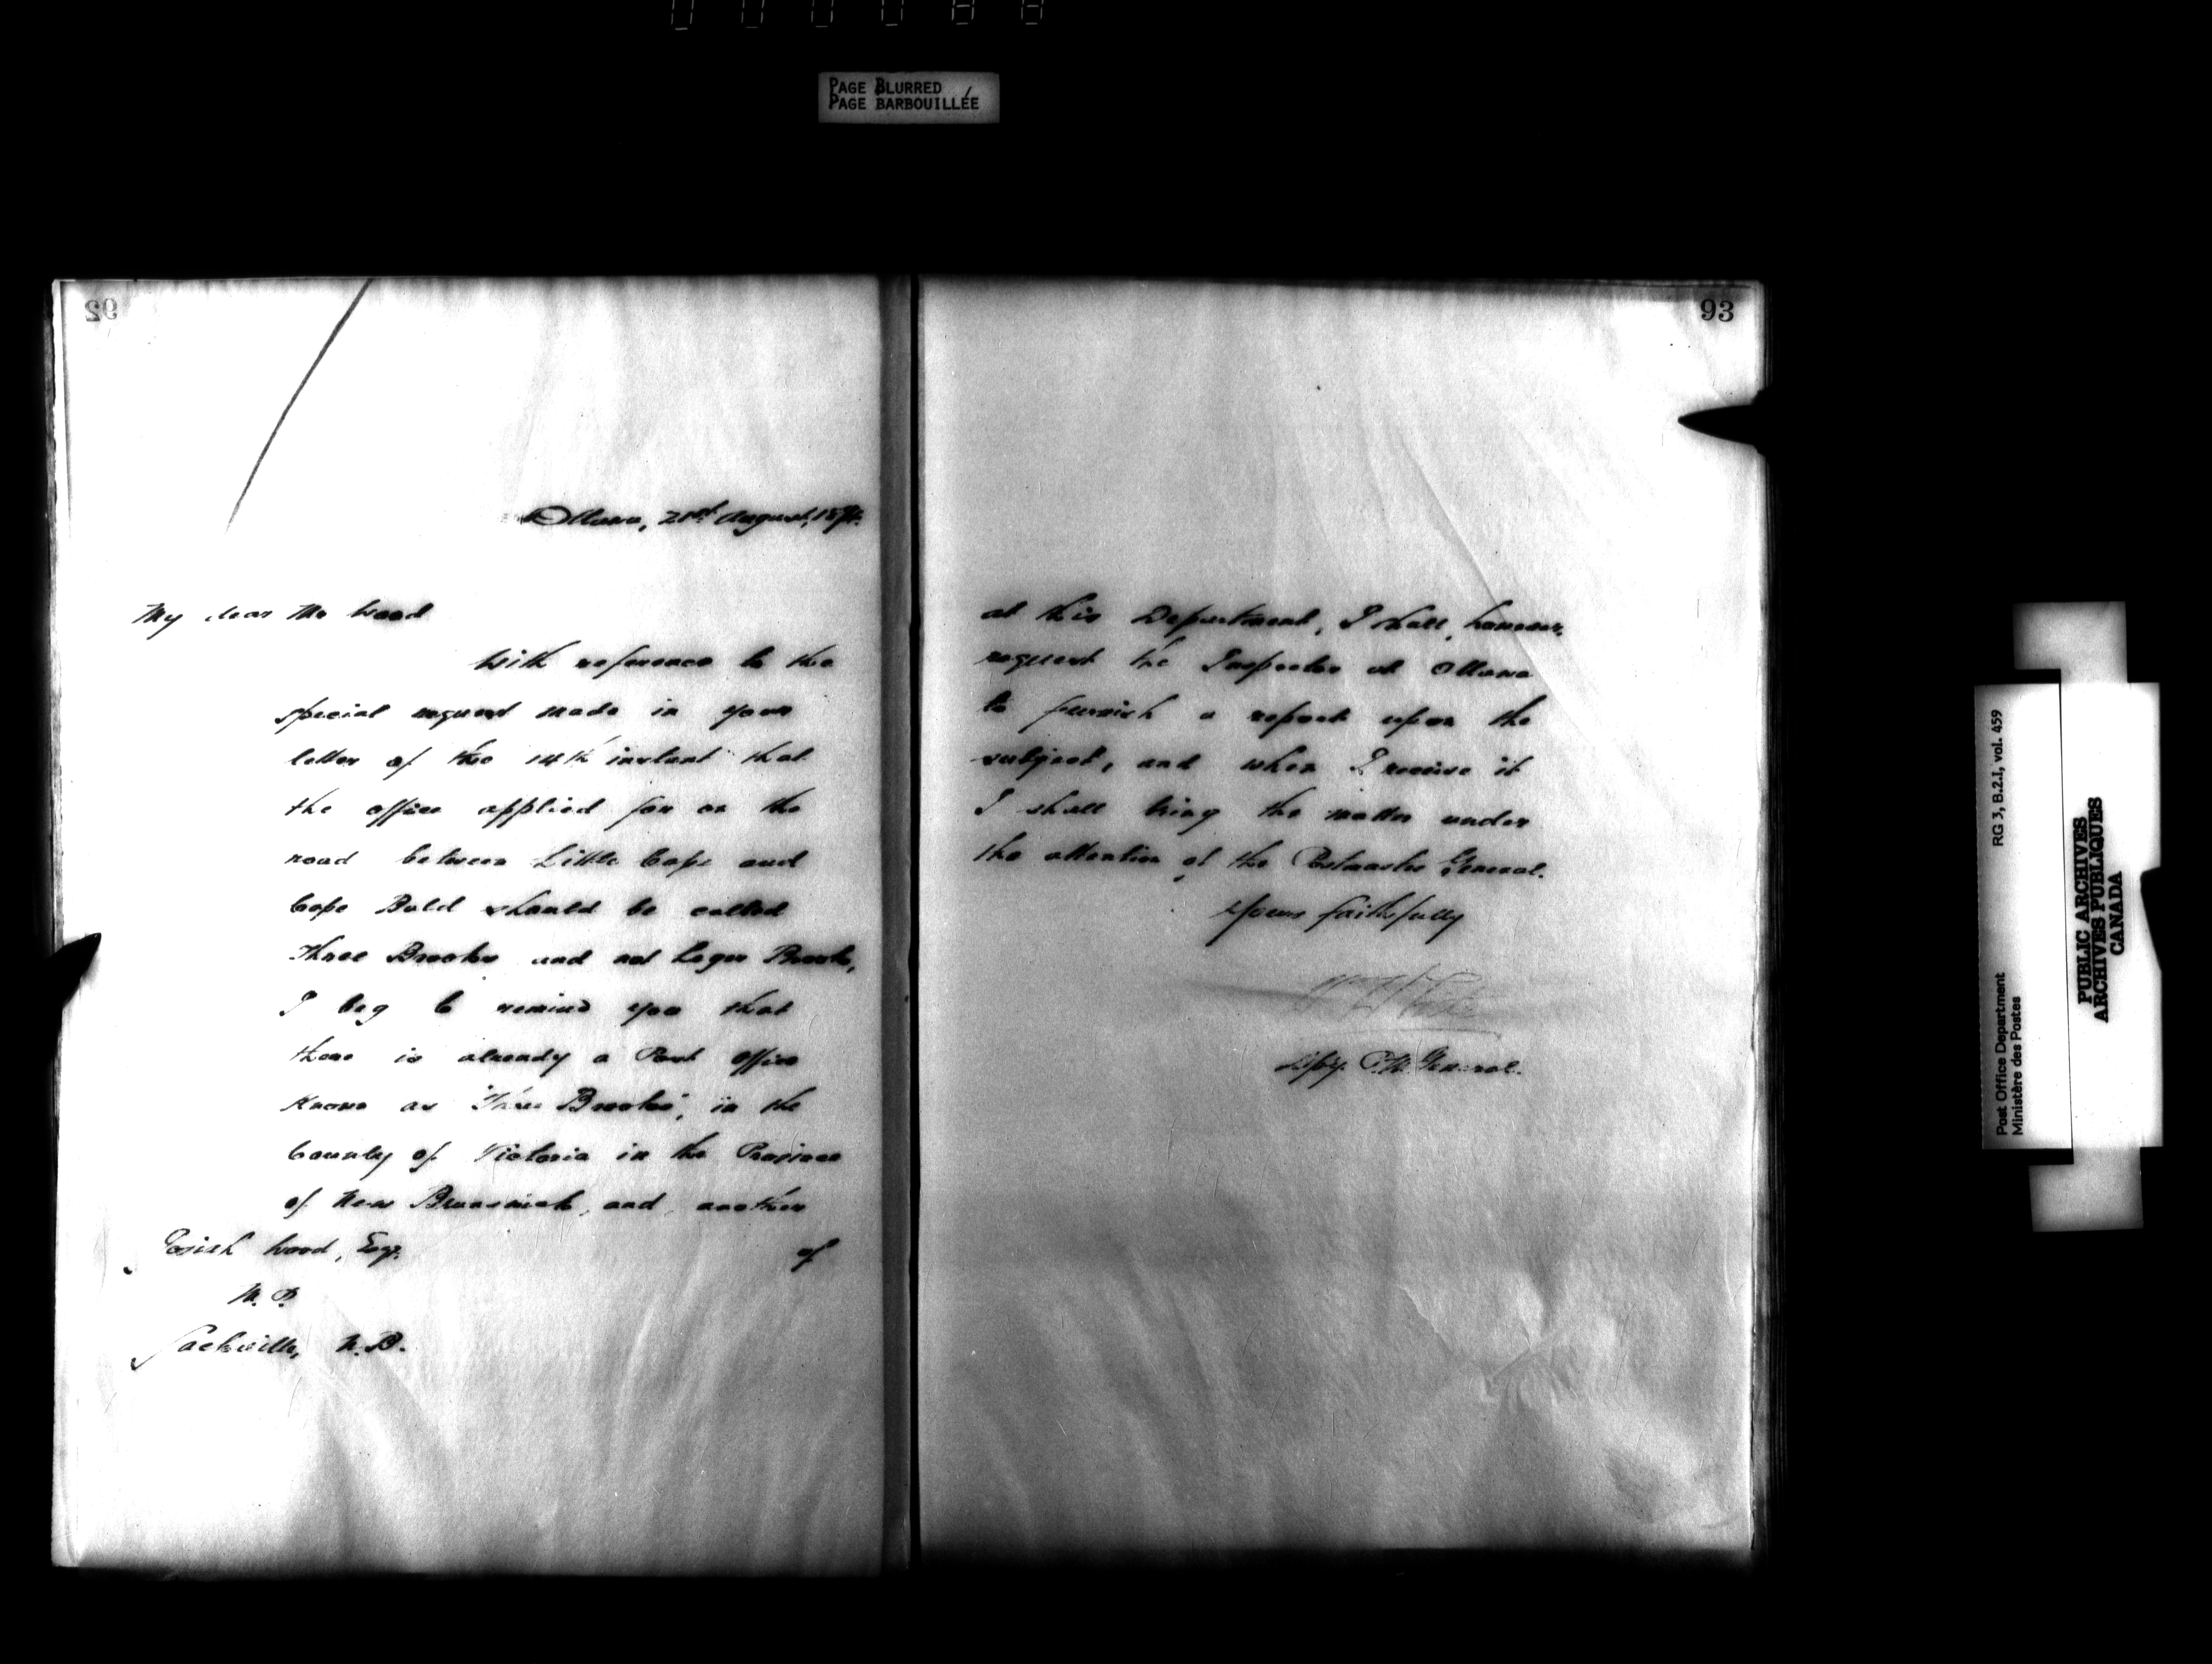 PAGE BLURRED
PAGE BARBOUILLÉE
92
Ottawa, 21st August, 189
My dear Mr Wood
With reference to the
special request made in your
letter of the 14th instant that
the office applied for on the
road between Little Cape and
Cape Bald should be called
Three Brooks and not Leger Brook,
I beg to remind you that
there is already a Post Office
known as "Three Brooks", in the
County of Victoria in the Province
of New Brunswick, and another
of
Josiah Wood, Esqr.
M.P.
Sackville, N.B.
93
at this Department, I shall, however,
request the Inspector at Ottawa
to furnish a report upon the
subject, and when I receive it
I shall bring the matter under
the attention of the Postmaster General.
Yours faithfully
Depy. P.M. General.
Post Office Department RG 3, B.2.I, vol. 459
Ministère des Postes
PUBLIC ARCHIVES
ARCHIVES PUBLIQUES
CANADA